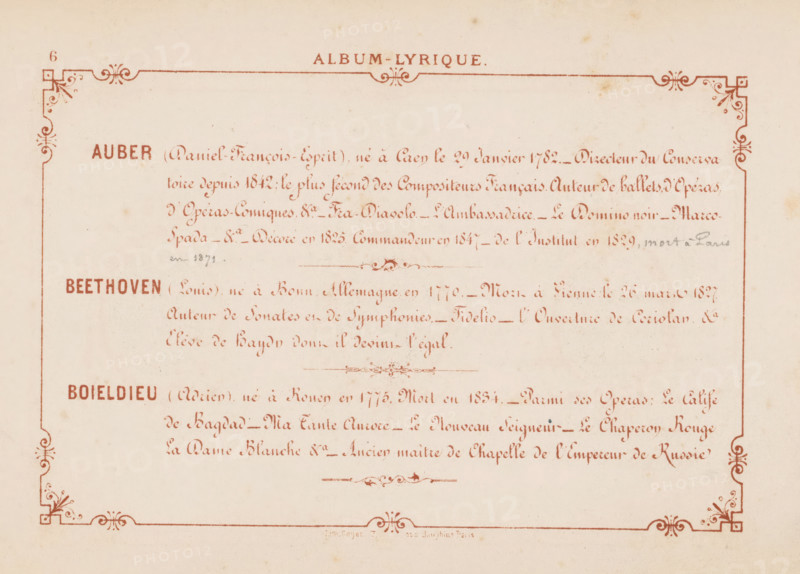 6
ALBUM-LYRIQUE.
AUBER (Daniel-François-Esprit), né à Caen le 29 Janvier 1782._ Directeur du Conserva
toire depuis 1842; le plus fécond des Compositeurs Français. Auteur de ballets, d'Opéras,
d'Opéras-Comiques, &a_ Fra-Diavolo._ L'Ambassadrice._ Le Domino noir_ Marco-
Spada_ &a_ Décoré en 1825. Commandeur en 1847_ de l'Institut en 1829, mort à Paris
en 1871.
BEETHOVEN (Louis), né à Bonn, Allemagne, en 1770._ Mort à Vienne le 26 mars 1827
Auteur de Sonates et de Symphonies._ Fidelio_ l'Ouverture de Coriolan, &a
Elève de Haydn dont il devint l'égal.
BOIELDIEU (Adrien), né à Rouen en 1775, Mort en 1834._ Parmi ses Operas: Le Calife
de Bagdad_ Ma Tante Aurore_ Le Nouveau Seigneur_ Le Chaperon Rouge
La Dame Blanche &a_ Ancien maître de Chapelle de l'Empereur de Russie
Paris
PHOTO12